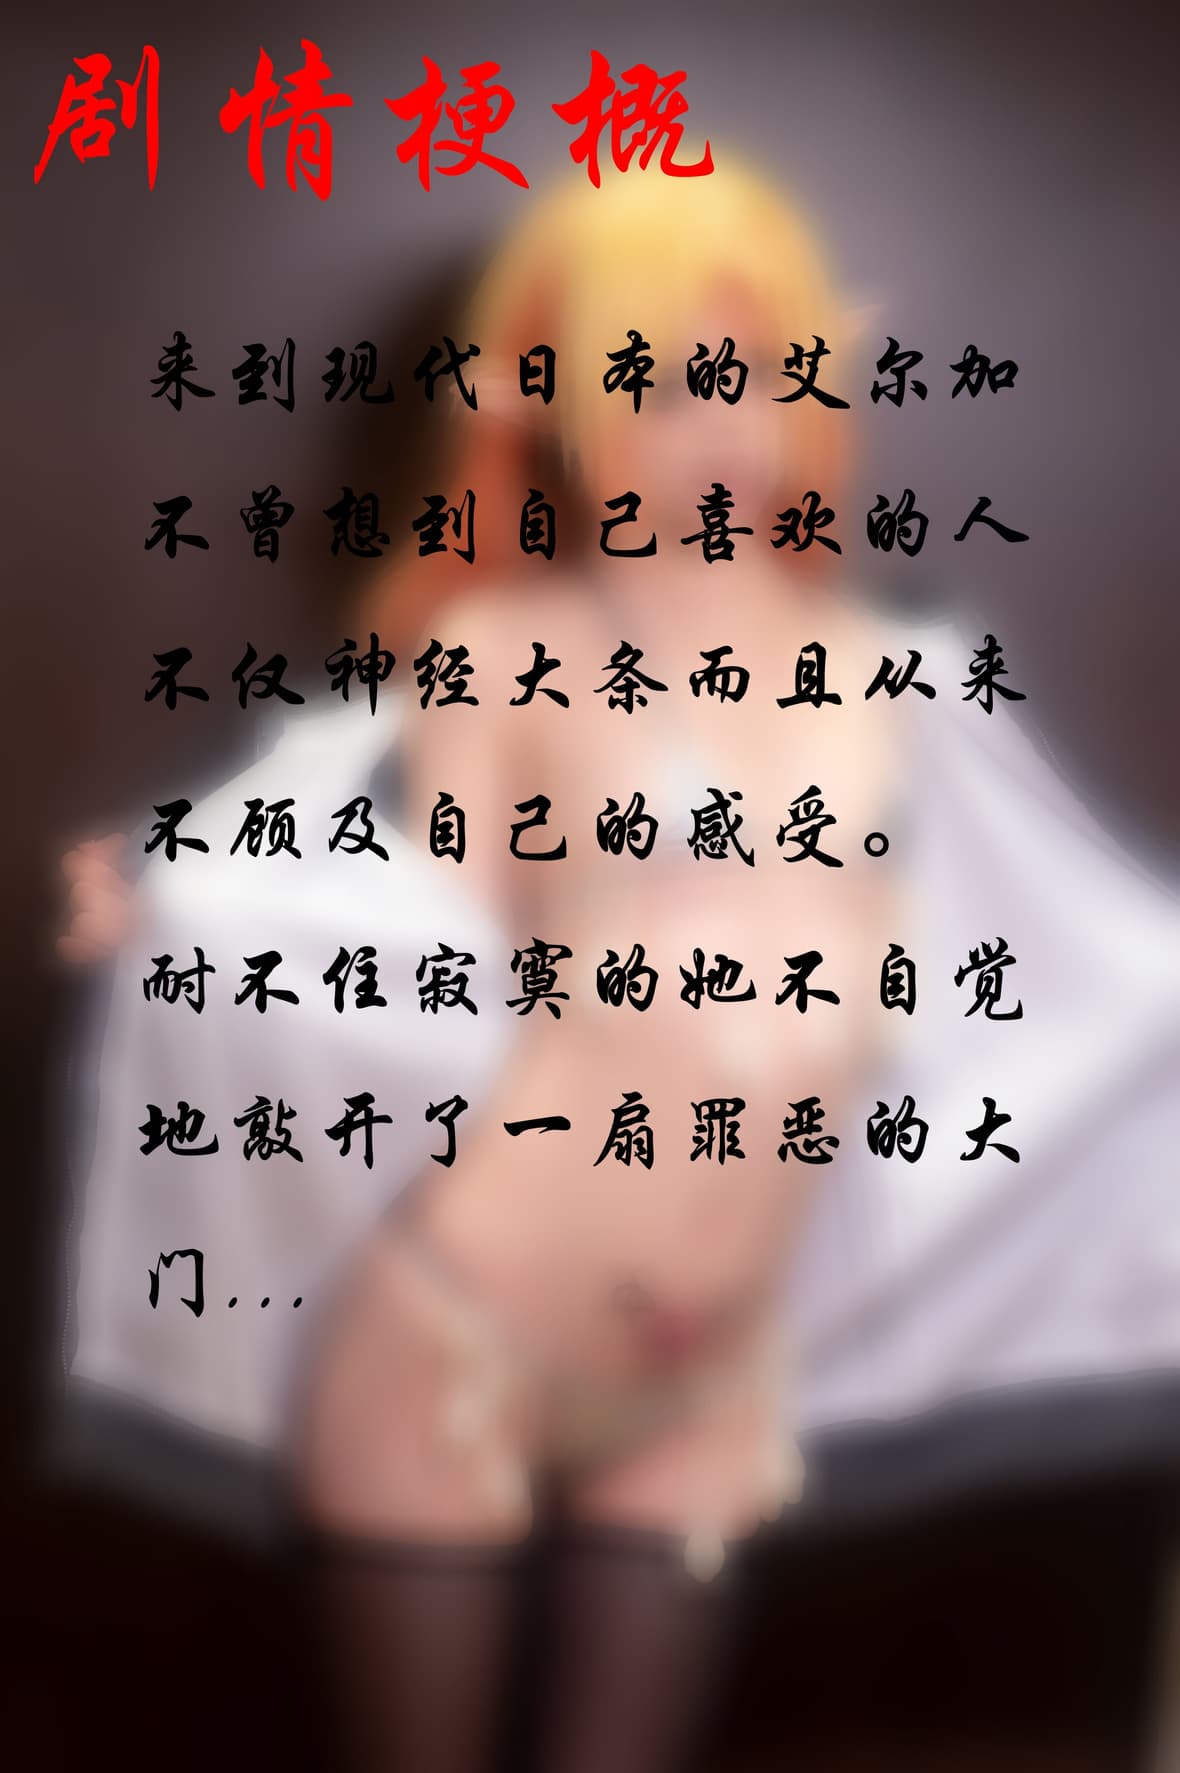 剧情梗概
来到现代日本的艾尔加
不曾想到自己喜欢的人
不仅神经大条而且从来
不顾及自己的感受。
耐不住寂寞的她不自觉
地敲开了一扇罪恶的大
门...